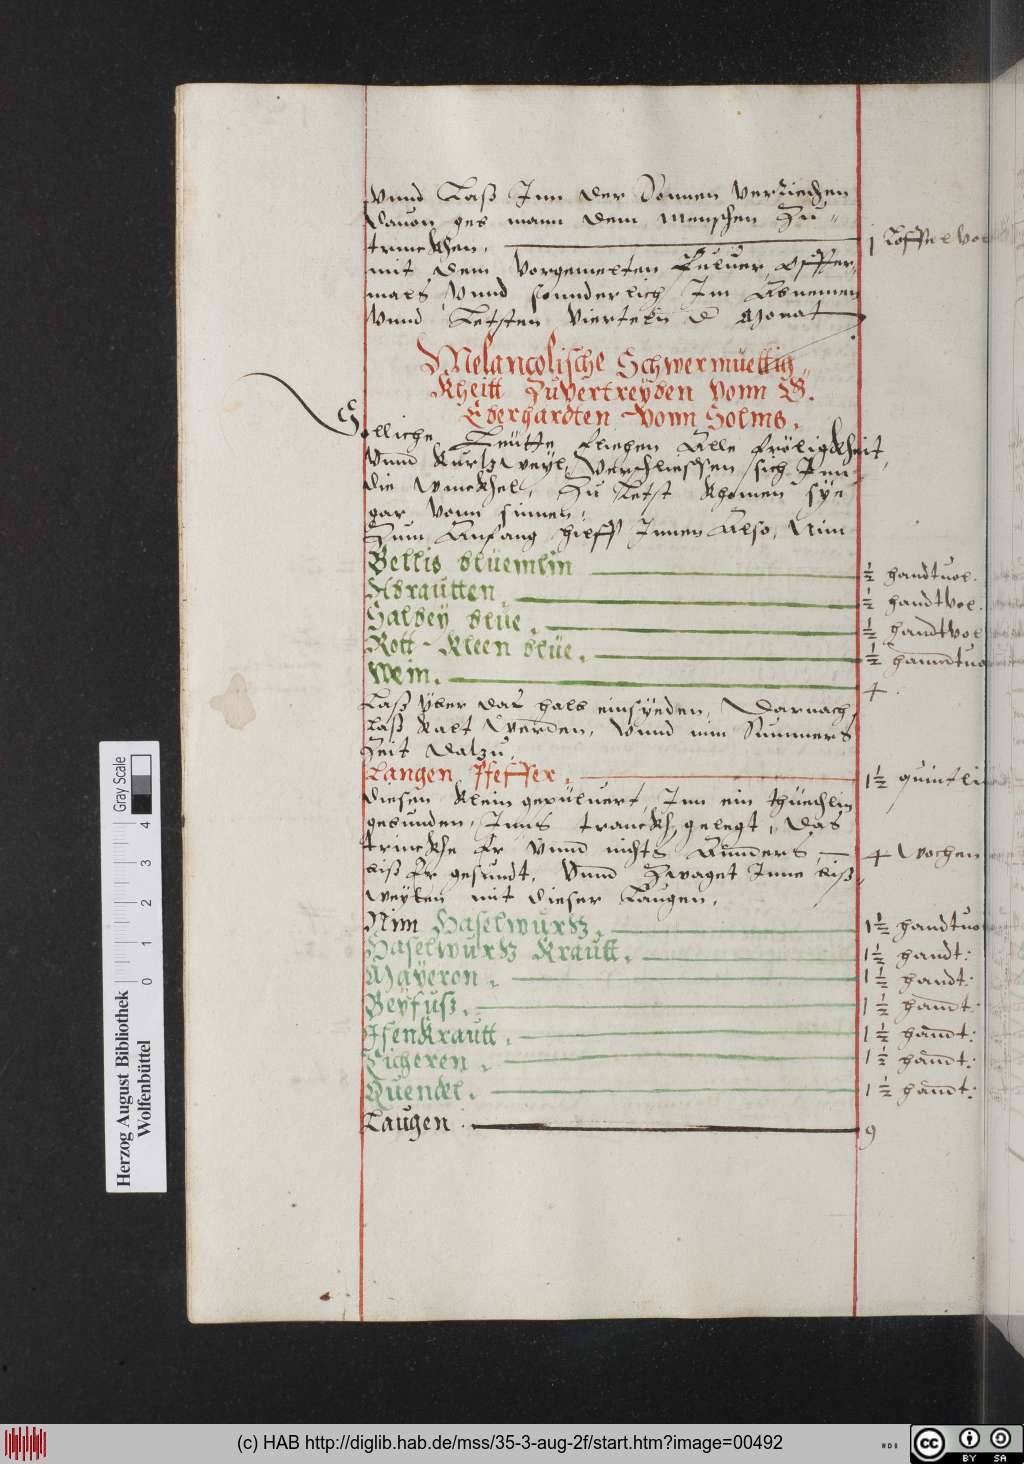 Vnnd Laß Inn der Sonnen verriechen
dauon geb mann dem menschen Zu-
trinckhen. j Löffelvol
mit dem vorgemelten Puluer, offter-
mals, Vnnd sonnderlich Im Abnemen
Vnnd Letsten Vierteln d Monat
Melancolische Schwermuettig-
Kheitt Zuvertreyben vonn G.
Eberhardten vonn Solms.
Solliche Leütte fliehen Alle frölickheit,
Vnnd Kurtzweyl, Verschliessen sich Inn
die winckhel, Zu Letst khomen sye
gar vonn sinnen.
Zum Anfang hilff Innen Also, Nim
Bellis blüemlin ½ handtuol.
Abrautten. ½ handtvol.
Salbey blüe. ½ handtvol
Rott-Kleen blüe. ½ hanndtuo
Wein. 4.
Laß yber das halb einsyeden, Darnach
laß kalt werden, Vnnd nim Summers
Zeit datzu.
Langen Pfeffer. 1½ quintli
diesen klein gepüluert, Inn ein thüechlin
gebunden, Inns tranckh gelegt, das
trinckhe Er Vnnd nichts Annders, 4 Wochen
biß Er gesundt, Vnnd Zwaget Inne biß
weylen mit dieser Laugen.
Nim Haselwurtz. 1½ handtuo
Haselwurtz Krautt. 1½ handt:
Mayeron. 1½ handt:
Beyfuß. 1½ hanndt:
Isenkrautt. 1½ hanndt:
Zicheren. 1½ hanndt:
Quendel. 1½ hanndt:
Laugen. 9
Herzog August Bibliothek
Wolfenbüttel
Gray Scale
0 1 2 3 4
(c) HAB http://diglib.hab.de/mss/35-3-aug-2f/start.htm?image=00492
cc BY SA